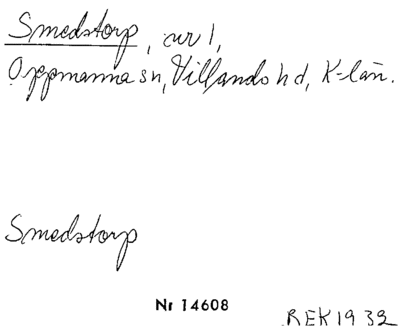 Smedstorp, nr 1,
Oppmanna sn, Villands hd, K-län.
Smedstorp
Nr 14608
REK 1932